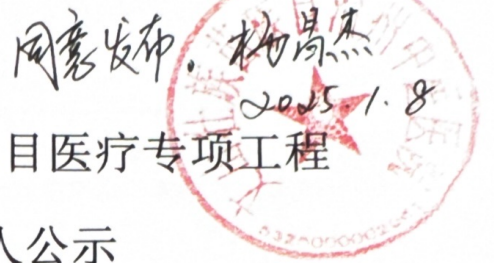 同意发布. 杨昌杰
2025.1.8
目医疗专项工程
人公示